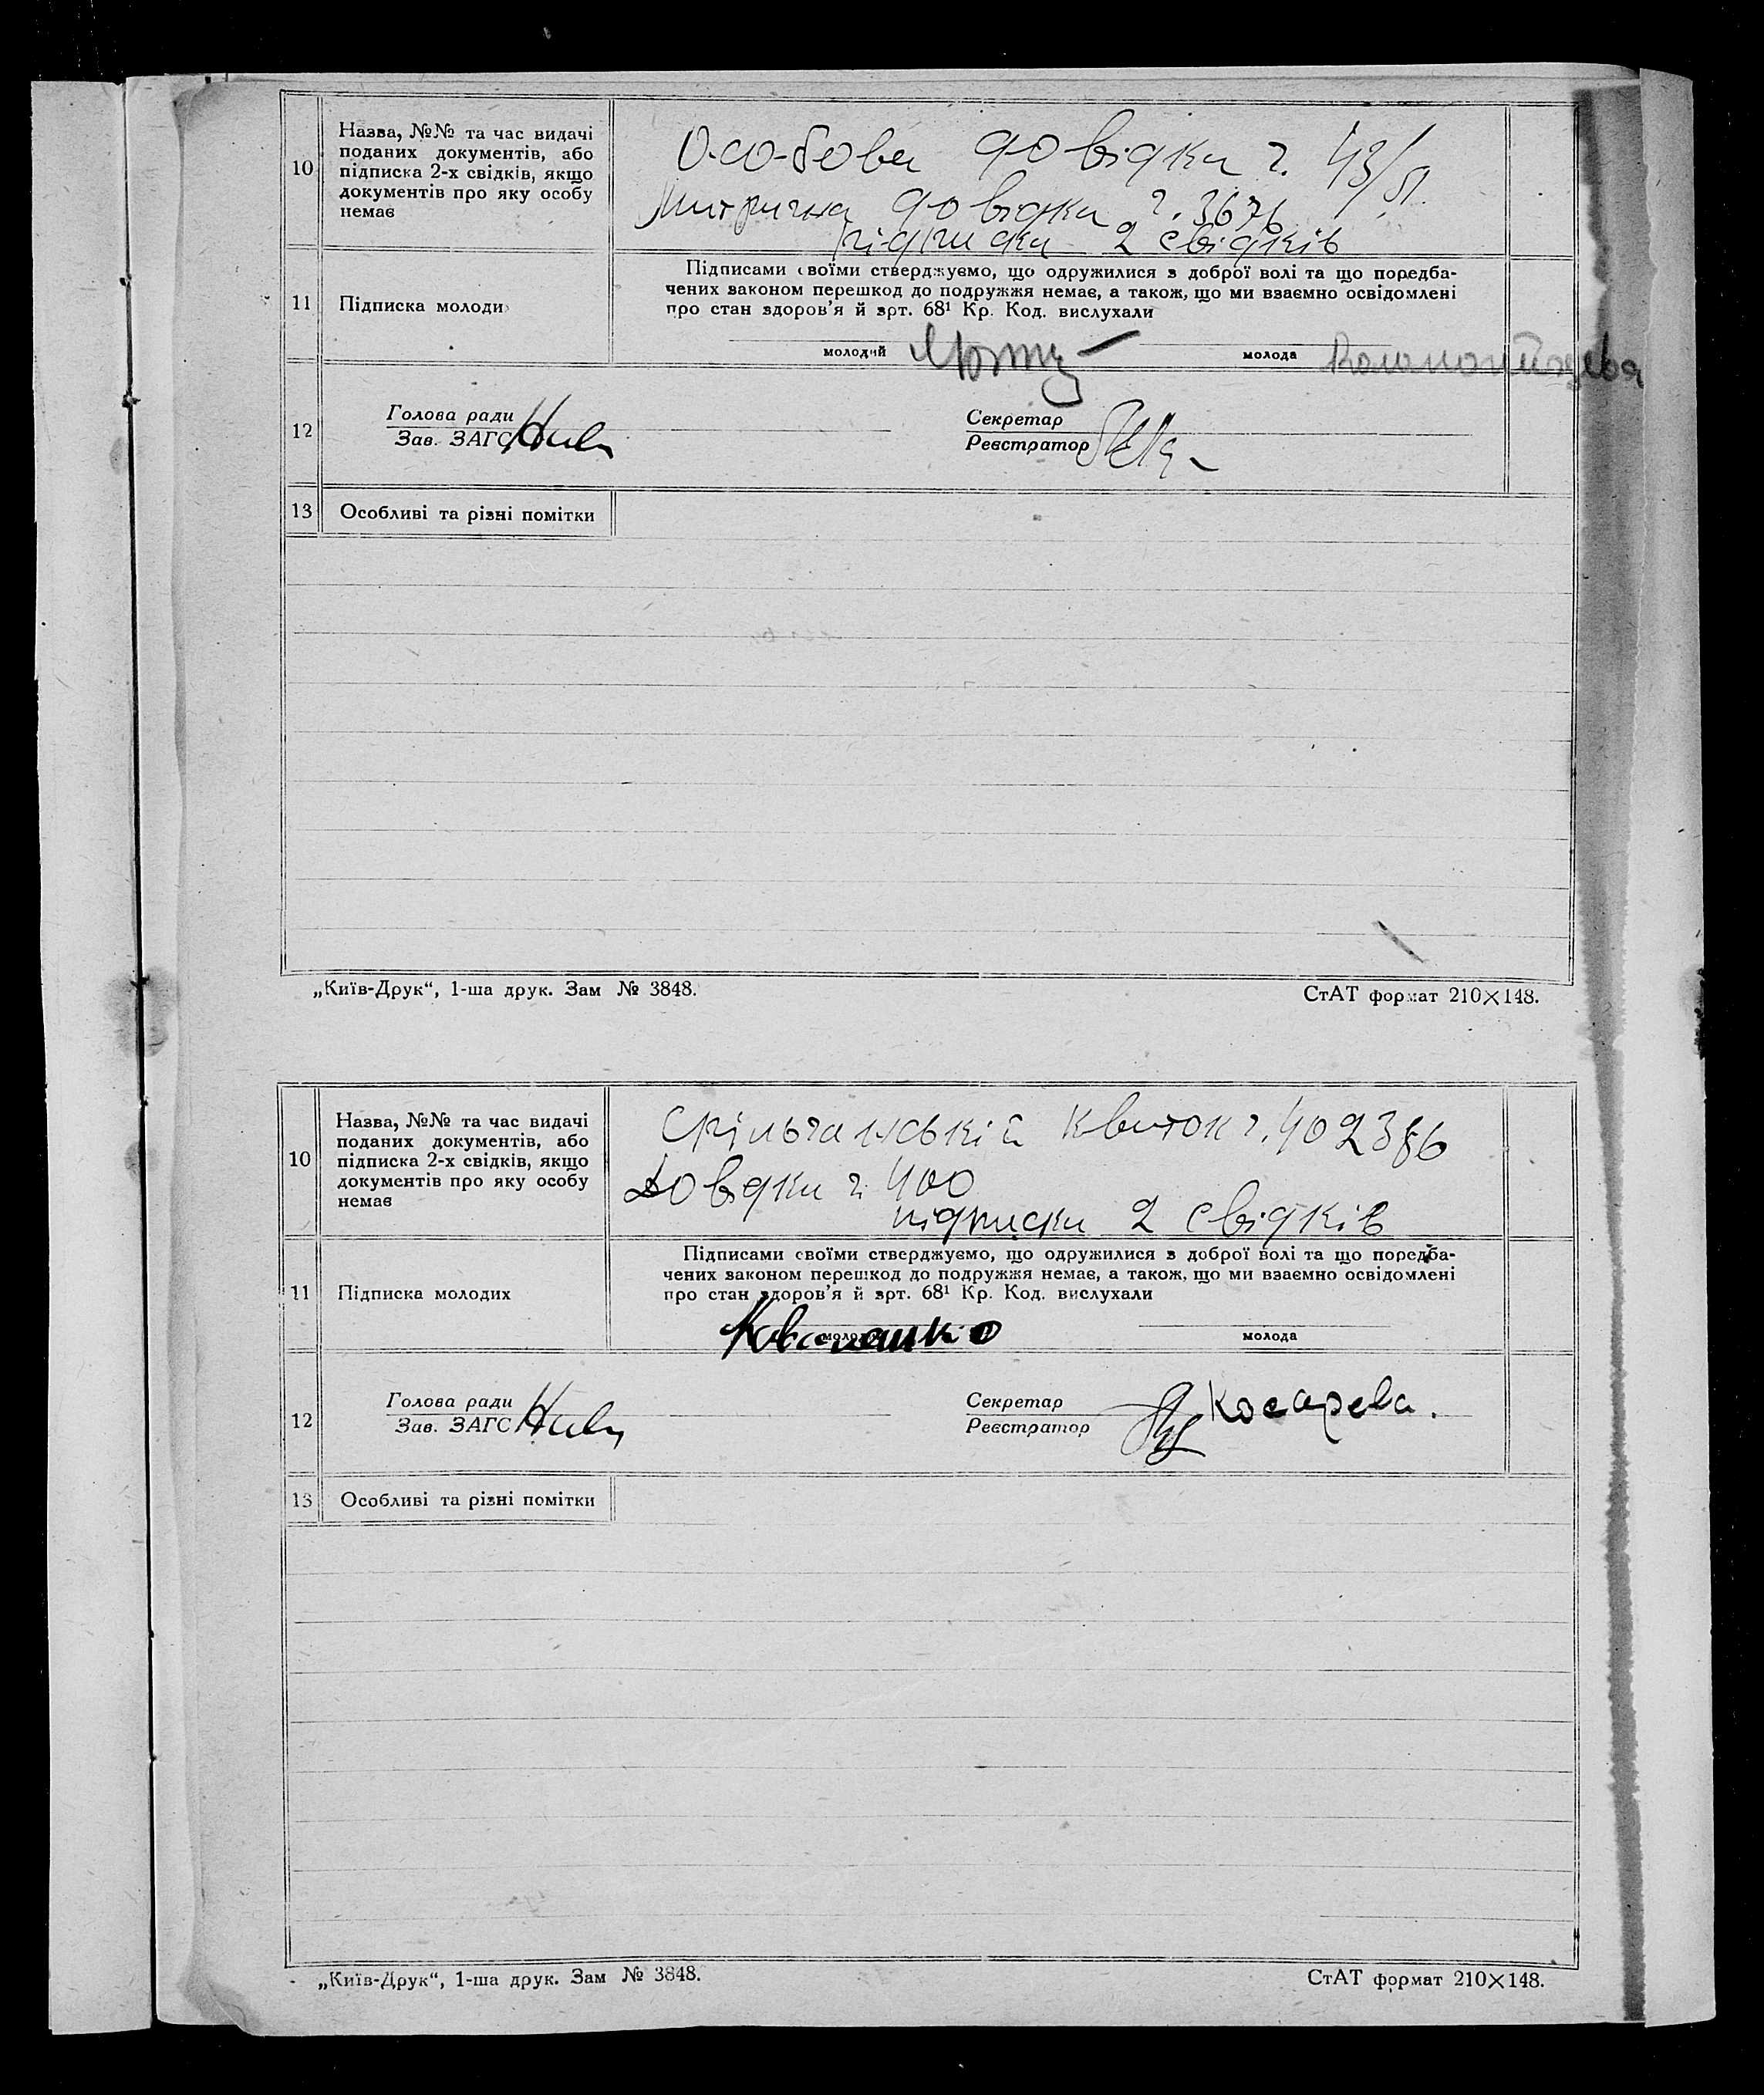 10
Назва, №№ та час видачі
поданих документів, або
підписка 2-х свідків, якщо
документів про яку особу
немає
Особова довідка ч. 43/51.
Митрична довідка ч. 3676
підписка 2 свідків
11
Підписка молоди
Підписами своїми стверджуємо, що одружилися з доброї волі та що поредба-
чених законом перешкод до подружжя немає, а також, що ми взаємно освідомлені
про стан здоров'я й арт. 68¹ Кр. Код. вислухали
молодий
молода
12
Голова ради
Зав. ЗАГС
Секретар
Реєстратор
13
Особливі та різні помітки
„Київ-Друк“, 1-ша друк. Зам № 3848.
СтАТ формат 210×148.
10
Назва, №№ та час видачі
поданих документів, або
підписка 2-х свідків, якщо
документів про яку особу
немає
квиток ч. 402386
Довідка ч. 400
підписка 2 свідків
11
Підписка молодих
Підписами своїми стверджуємо, що одружилися з доброї волі та що поредба-
чених законом перешкод до подружжя немає, а також, що ми взаємно освідомлені
про стан здоров'я й арт. 68¹ Кр. Код. вислухали
молода
12
Голова ради
Зав. ЗАГС
Секретар
Реєстратор
Косарева.
13
Особливі та різні помітки
„Київ-Друк“, 1-ша друк. Зам № 3848.
СтАТ формат 210×148.